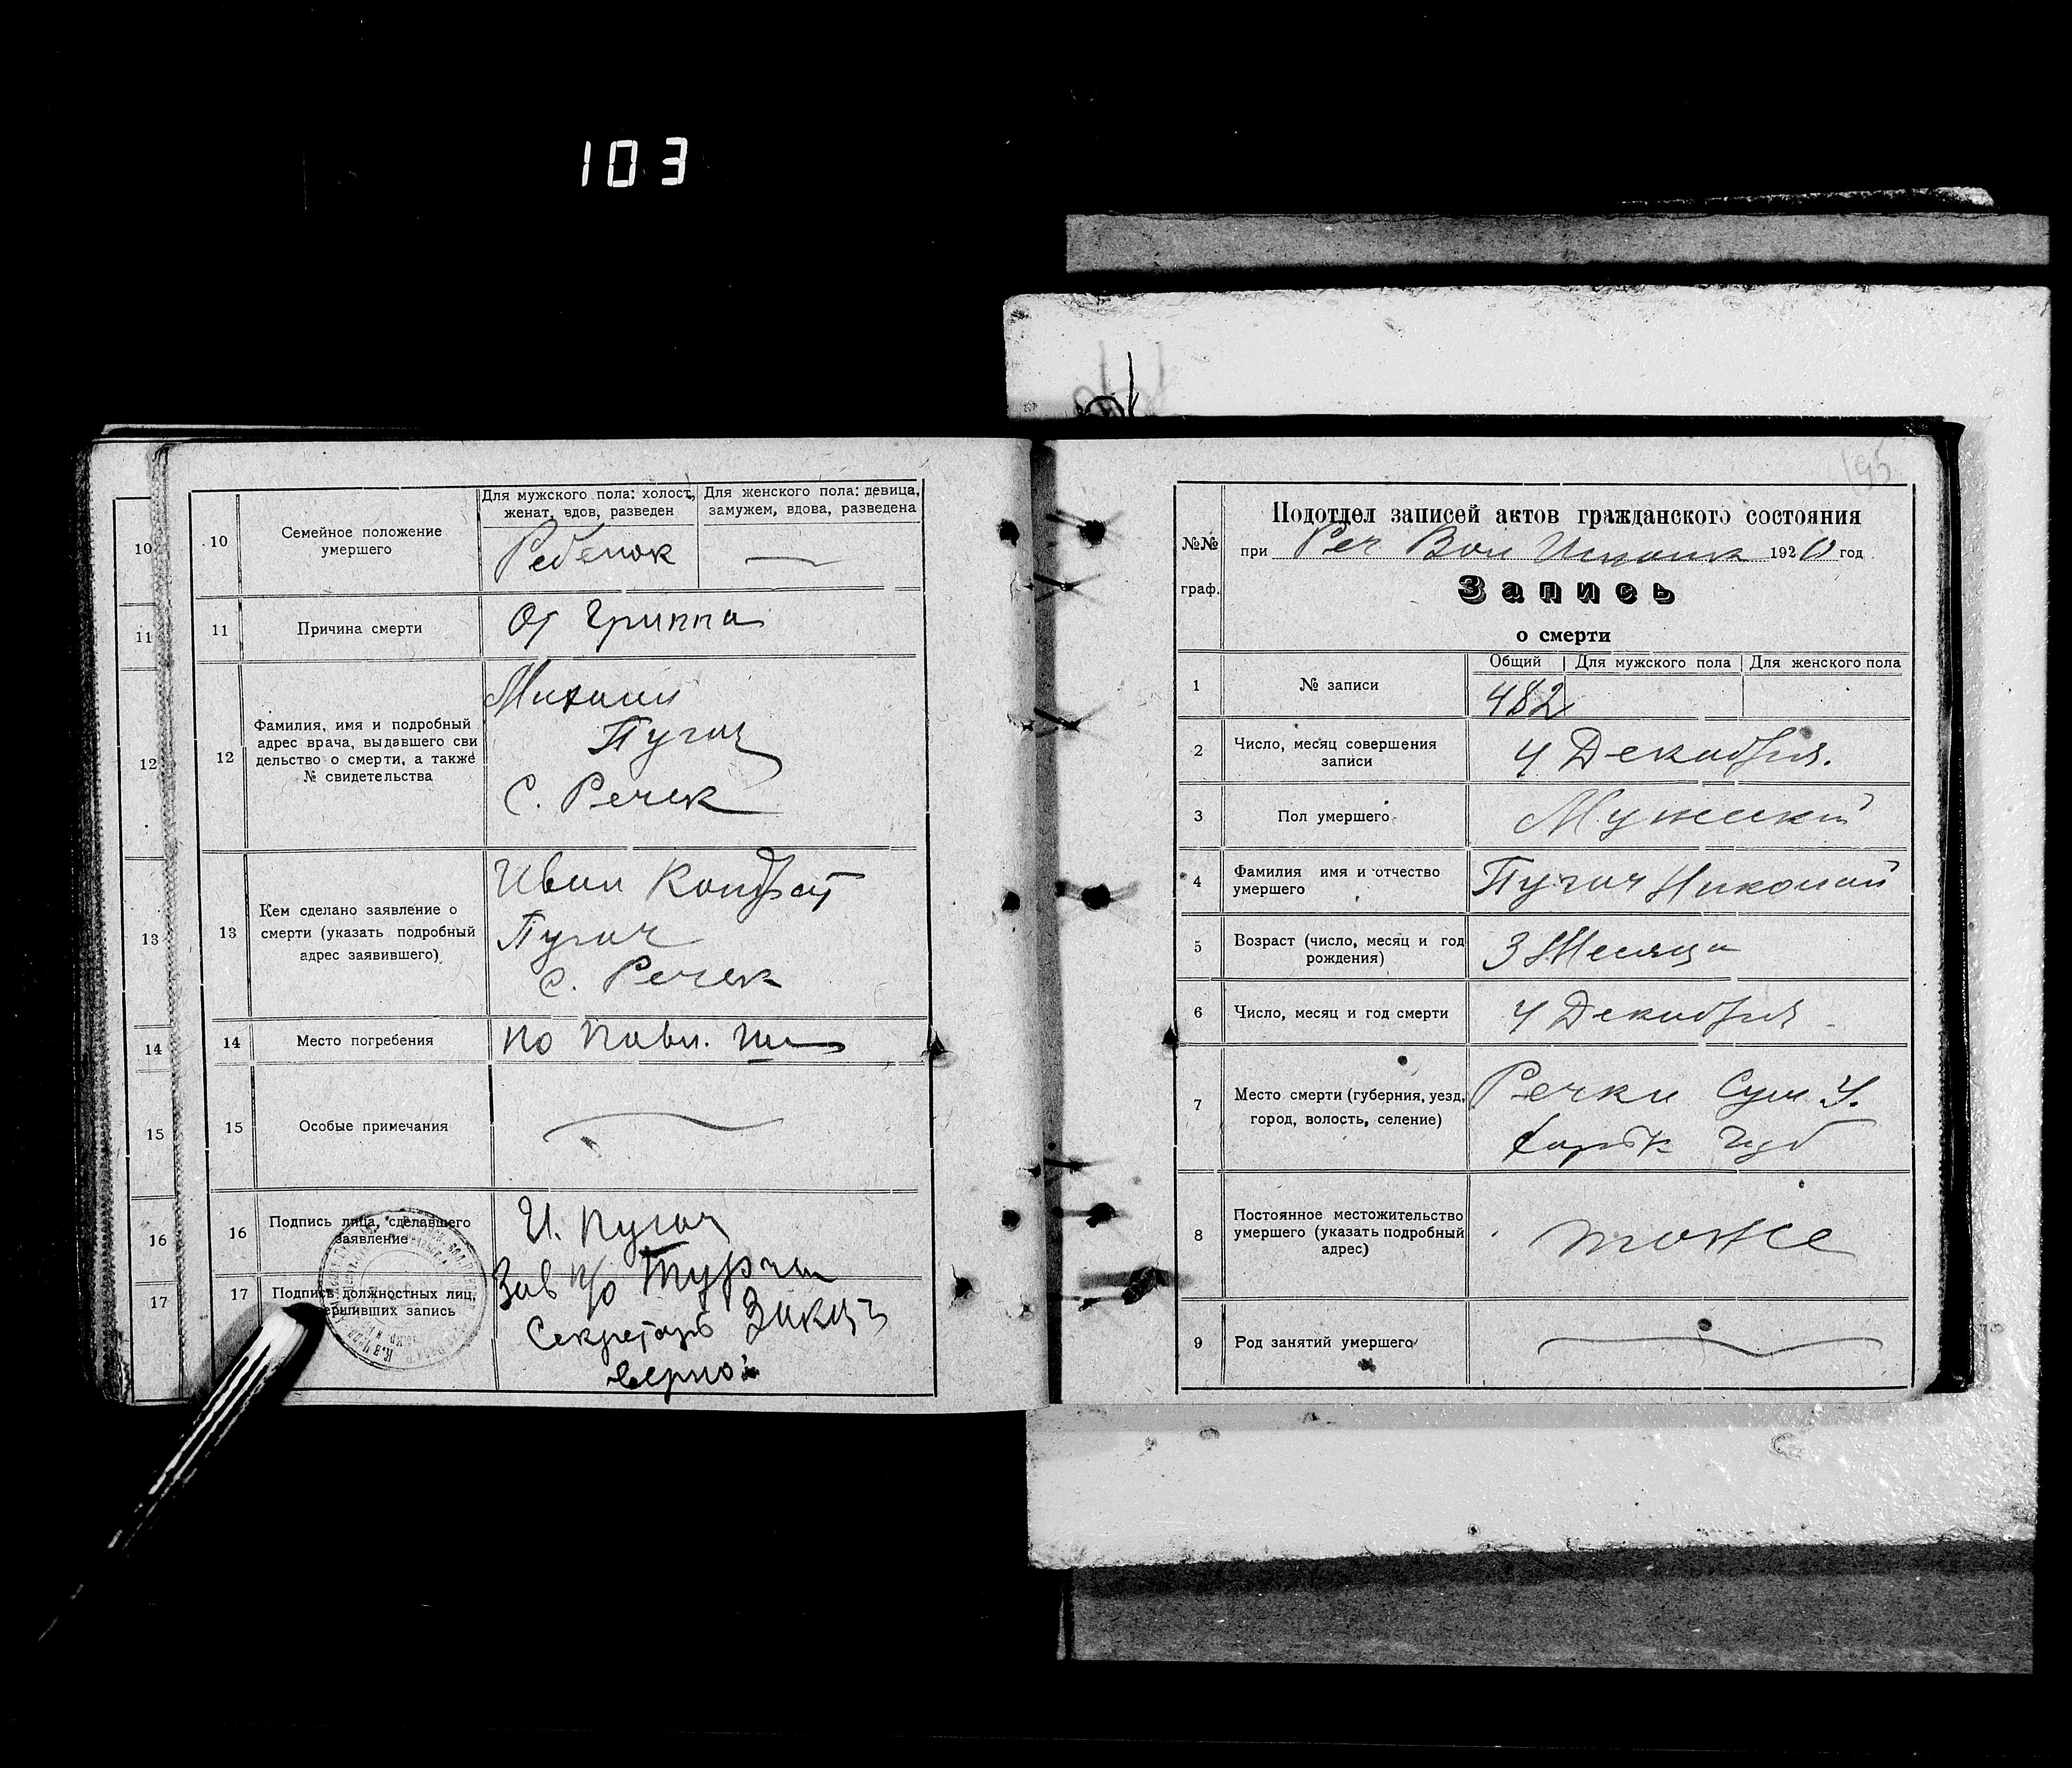 103
195
10
11
12
13
14
15
16
17
10
Семейное положение
умершего
Для мужского пола: холост,
женат, вдов, разведен
Для женского пола: девица,
замужем, вдова, разведена
Ребенок
11
Причина смерти
От Гриппа
12
Фамилия, имя и подробный
адрес врача, выдавшего сви
дельство о смерти, а также
№ свидетельства
Михаил
Пугач
С. Речек
13
Кем сделано заявление о
смерти (указать подробный
адрес заявившего)
Иван Кондрат
Пугач
с. Речек
14
Место погребения
по Павл.
15
Особые примечания
16
Подпись лица, сделавшего
заявление
И. Пугач
17
Подпись должностных лиц,
вершивших запись
Зав п/о
Секретарь
верно:
№№
граф.
Подотдел записей актов гражданского состояния
при Реч Вол 1920 год
Запись
о смерти
1
№ записи
Общий
Для мужского пола
Для женского пола
482
2
Число, месяц совершения
записи
4 Декабря.
3
Пол умершего
Мужской
4
Фамилия имя и отчество
умершего
Пугач Николай
5
Возраст (число, месяц и год
рождения)
3 Месяца
6
Число, месяц и год смерти
4 Декабря
7
Место смерти (губерния, уезд,
город, волость, селение)
Речки Сум У.
Харьк губ
8
Постоянное местожительство
умершего (указать подробный
адрес)
тоже
9
Род занятий умершего